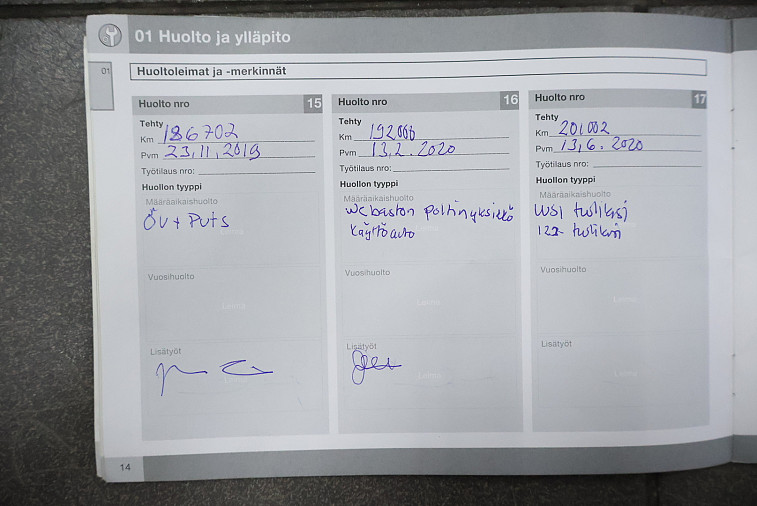 01 Huolto ja ylläpito
01
Huoltoleimat ja -merkinnät
Huolto nro 15
Tehty
Km 186702
Pvm 23.11.2019
Työtilaus nro:
Huollon tyyppi
Määräaikaishuolto
ÖV + PUTS
Vuosihuolto
Leima
Lisätyöt
Huolto nro 16
Tehty
Km 192000
Pvm 13.2.2020
Työtilaus nro:
Huollon tyyppi
Määräaikaishuolto
Webaston poltinyksikkö
Käyttöauto
Vuosihuolto
Leima
Lisätyöt
Huolto nro 17
Tehty
Km 201002
Pvm 13.6.2020
Työtilaus nro:
Huollon tyyppi
Määräaikaishuolto
Vuosihuolto
Leima
Lisätyöt
14